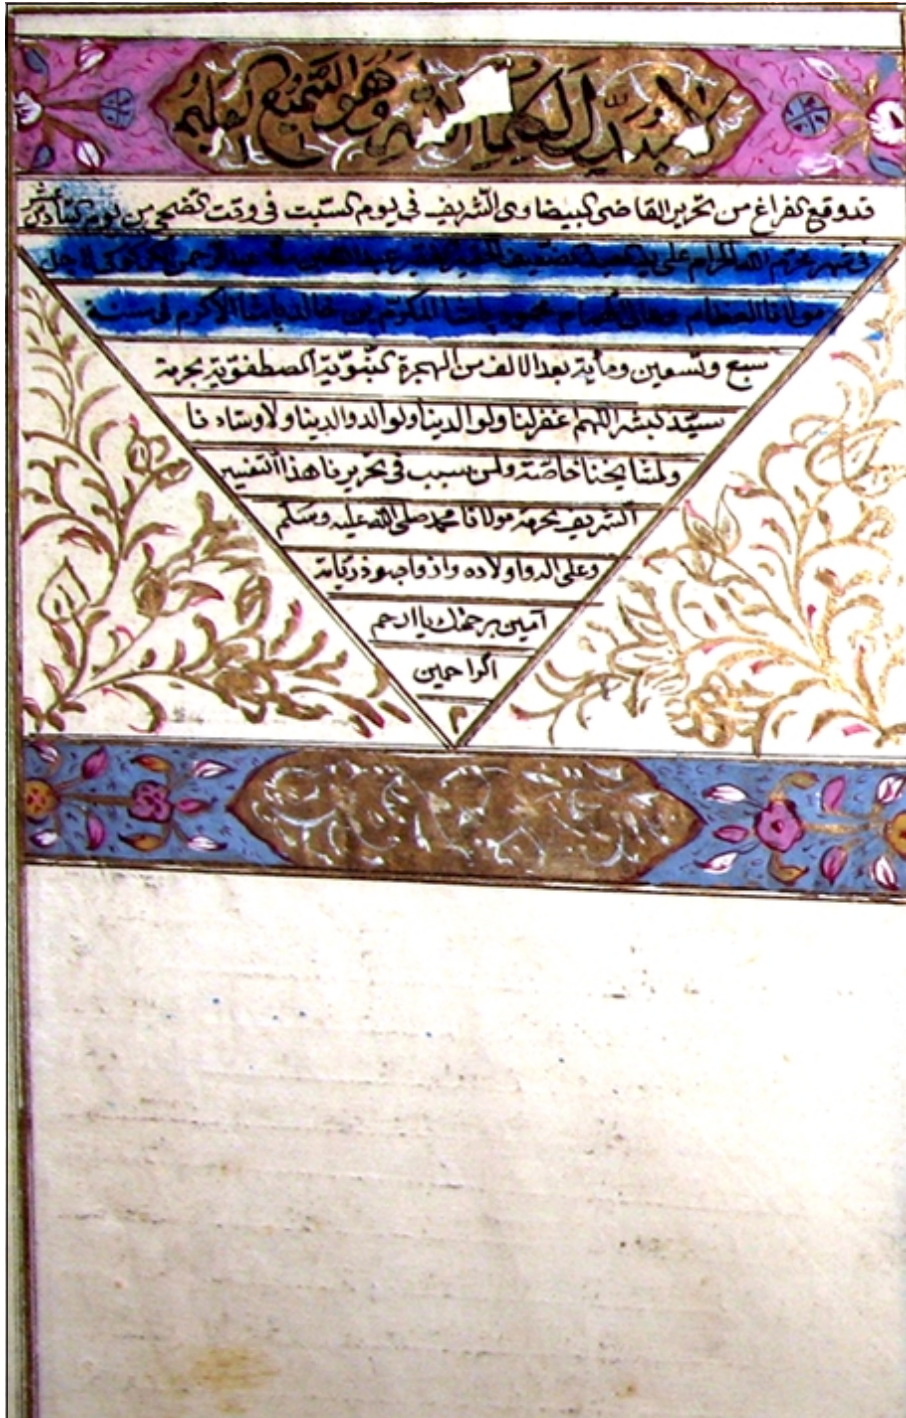 لا مبدل لكلمات الله وهو السميع العليم
قد وقع الفراغ من تحرير القاضى البيضاوى الشريف فى يوم السبت فى وقت الضحى من يوم السادس
فى شهر محرم الحرام على يد العبد الضعيف
مولانا العظام محمود پاشا المكرم بن خالد پاشا الاكرم فى سنة
سبع وتسعين ومأية بعد الالف من الهجرة النبوية المصطفوية بحرمة
سيد البشر اللهم اغفر لنا ولوالدينا ولوالد والدينا ولاوستادنا
ولمشايخنا خاصة ولمن سبب فى تحريرنا هذا التفسير
الشريف بحرمة مولانا محمد صلى الله عليه وسلم
وعلى اله واولاده وازواجه وذرياته
آمين برحمتك يا ارحم
الراحمين
م